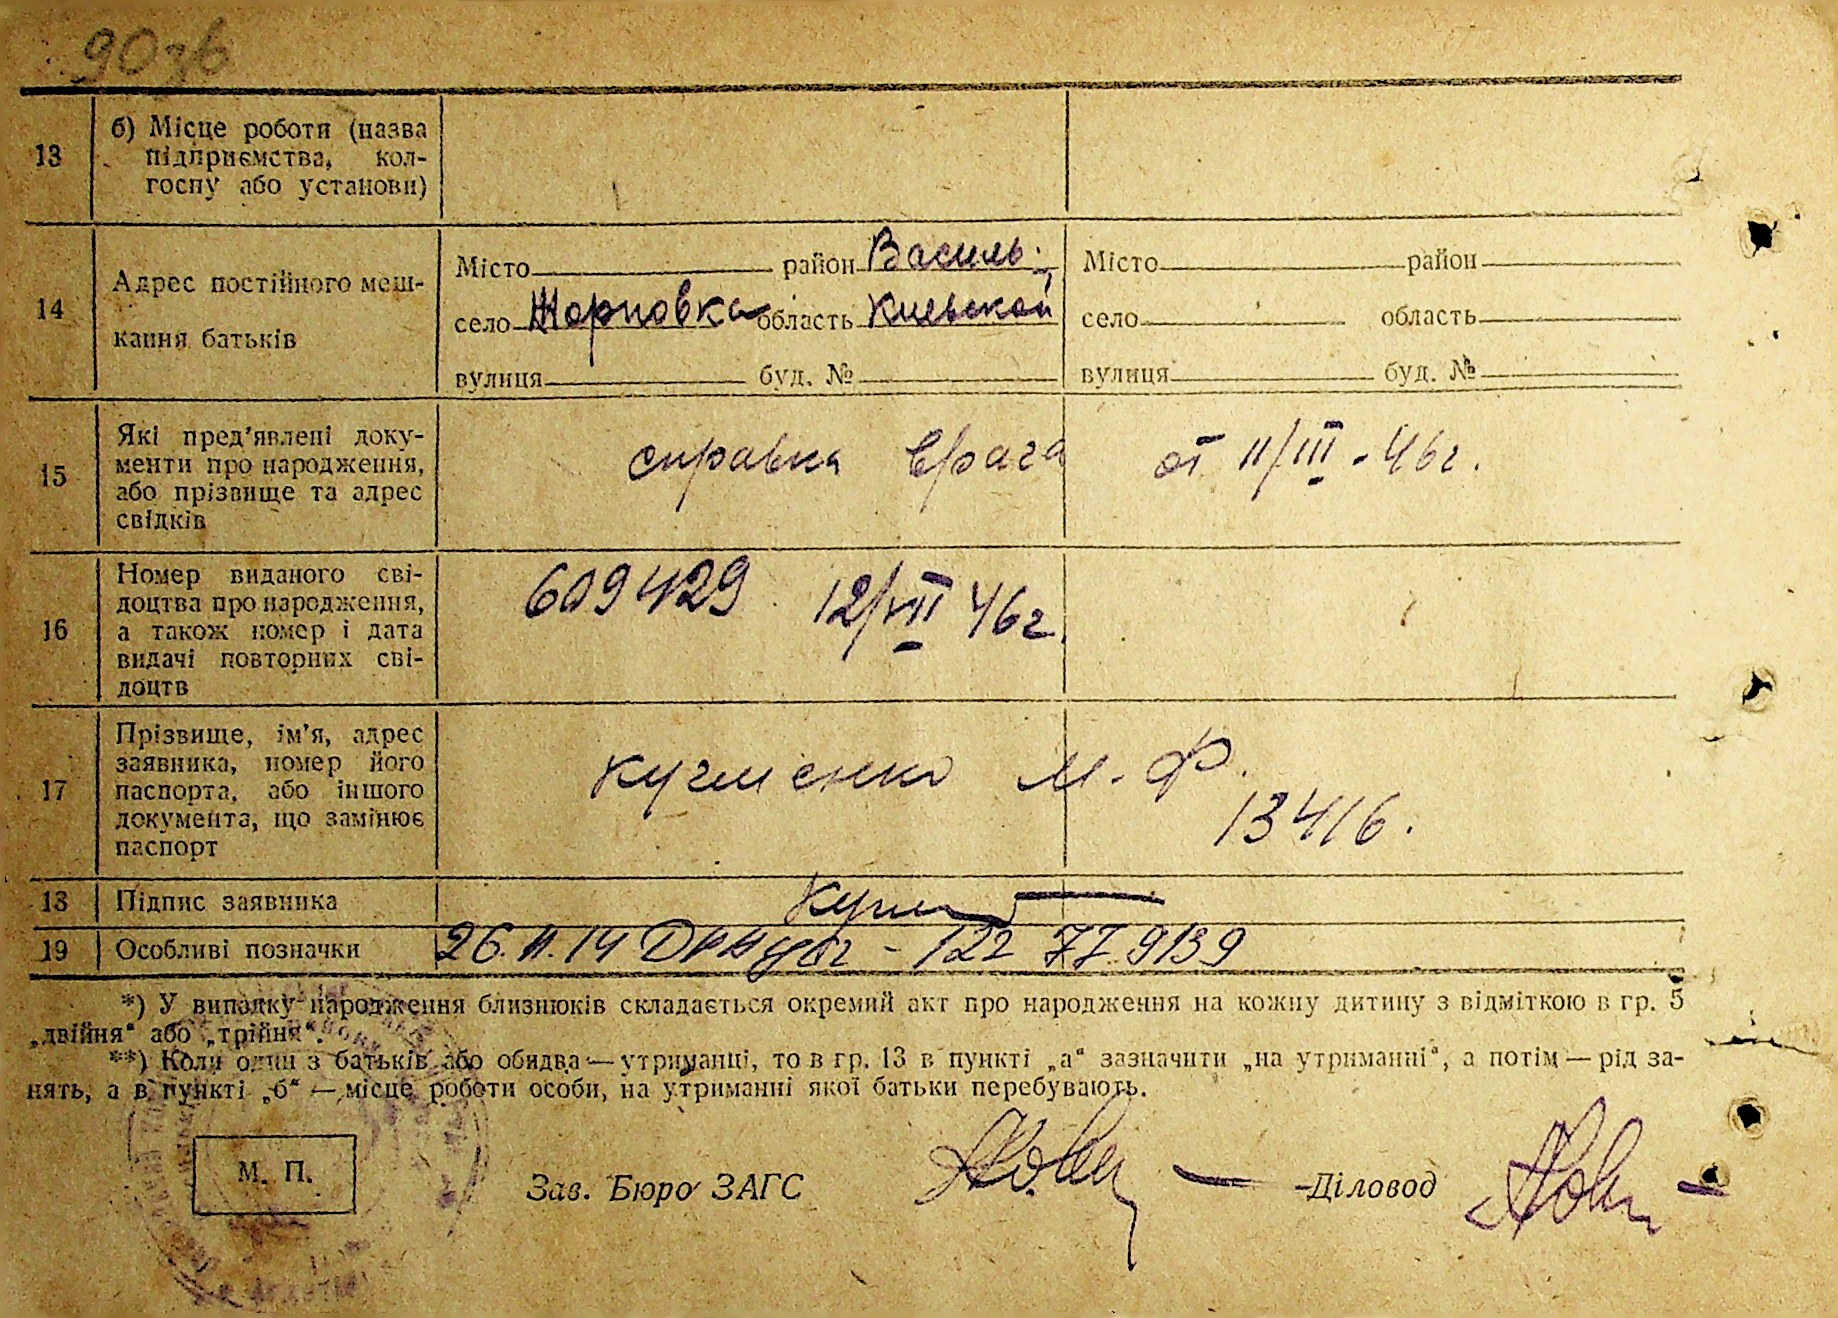 90зв
13
б) Місце роботи (назва
підприємства, кол-
госпу або установи)
14
Адрес постійного меш-
кання батьків
Місто район Василь.
село Жорновка область Киевской
вулиця буд. №
Місто район
село область
вулиця буд. №
15
Які пред'явлені доку-
менти про народження,
або прізвище та адрес
свідків
справка врача от 11/III-46г.
16
Номер виданого сві-
доцтва про народження,
а також номер і дата
видачі повторних сві-
доцтв
609429 12/VII 46г.
17
Прізвище, ім'я, адрес
заявника, номер його
паспорта, або іншого
документа, що замінює
паспорт
Кучменко М. Ф.
13416.
18 Підпис заявника
19 Особливі позначки 122 77 9139
*) У випадку народження близнюків складається окремий акт про народження на кожну дитину з відміткою в гр. 5
„двійня“ або „трійня“.
**) Коли один з батьків або обидва — утриманці, то в гр. 13 в пункті „а“ зазначити „на утриманні“, а потім — рід за-
нять, а в пункті „б“ — місце роботи особи, на утриманні якої батьки перебувають.
М. П.
Зав. Бюро ЗАГС
Діловод